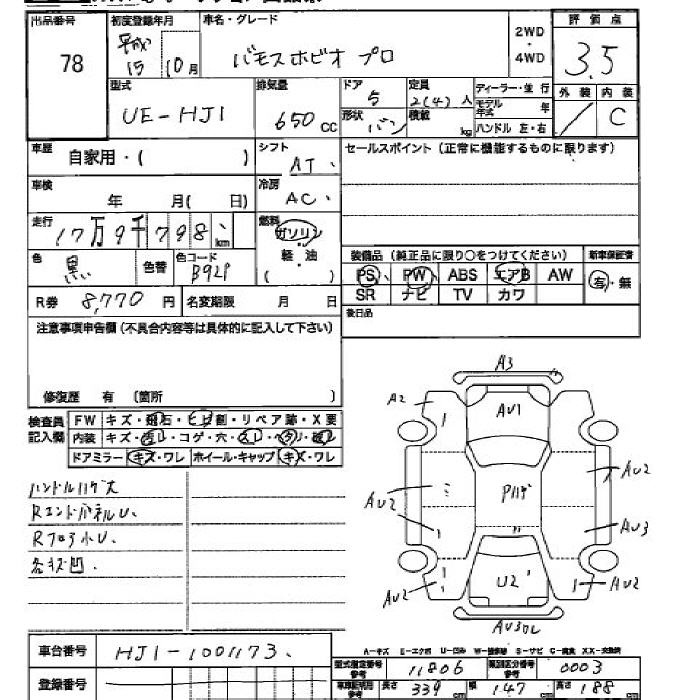 出品番号 初度登録年月 車名・グレード 2WD・4WD 評価点
78 平成15 10月 バモスホビオ プロ 3.5
型式 排気量 ドア 定員 ディーラー・並行 外装 内装
UE-HJ1 650cc 5 2(4)人 モデル年式 年 / C
形状 バン 積載 kg ハンドル 左・右
車歴 自家用・( ) シフト AT、 セールスポイント(正常に機能するものに限ります)
車検 年 月(日) 冷房 AC、
走行 17万9千798、km 燃料 ガソリン・軽・油 ( )
色 黒 色替 色コード B92P
装備品(純正品に限り○をつけてください) 新車保証書
PS、 PW、 ABS エアB AW 有・無
SR ナビ TV カワ
R券 8,770円 名変期限 月 日 後日品
注意事項申告欄(不具合内容等は具体的に記入して下さい)
修復歴 有(箇所 )
検査員記入欄 FW キズ・飛石・ヒビ割・リペア跡・X要
内装 キズ・汚レ・コゲ・穴・スレ・ヘタリ・破レ
ドアミラー キズ・ワレ ホイール・キャップ キズ・ワレ
ハンドルハゲ大
RエンドパネルU、
Rフロア小U、
各キズ凹、
A3
A2
AU1
AU2
PハゲAU2
AU3
AU2
U2
AU2
AU3
A-キズ E-エクボ U-凹み W-補修跡 S-サビ C-腐食 XX-交換済
車台番号 HJ1-1001173、
型式指定番号 参考 11806 類別区分番号 参考 0003
登録番号
車車証明用 参考 長さ 339cm 幅 147cm 高さ 188cm